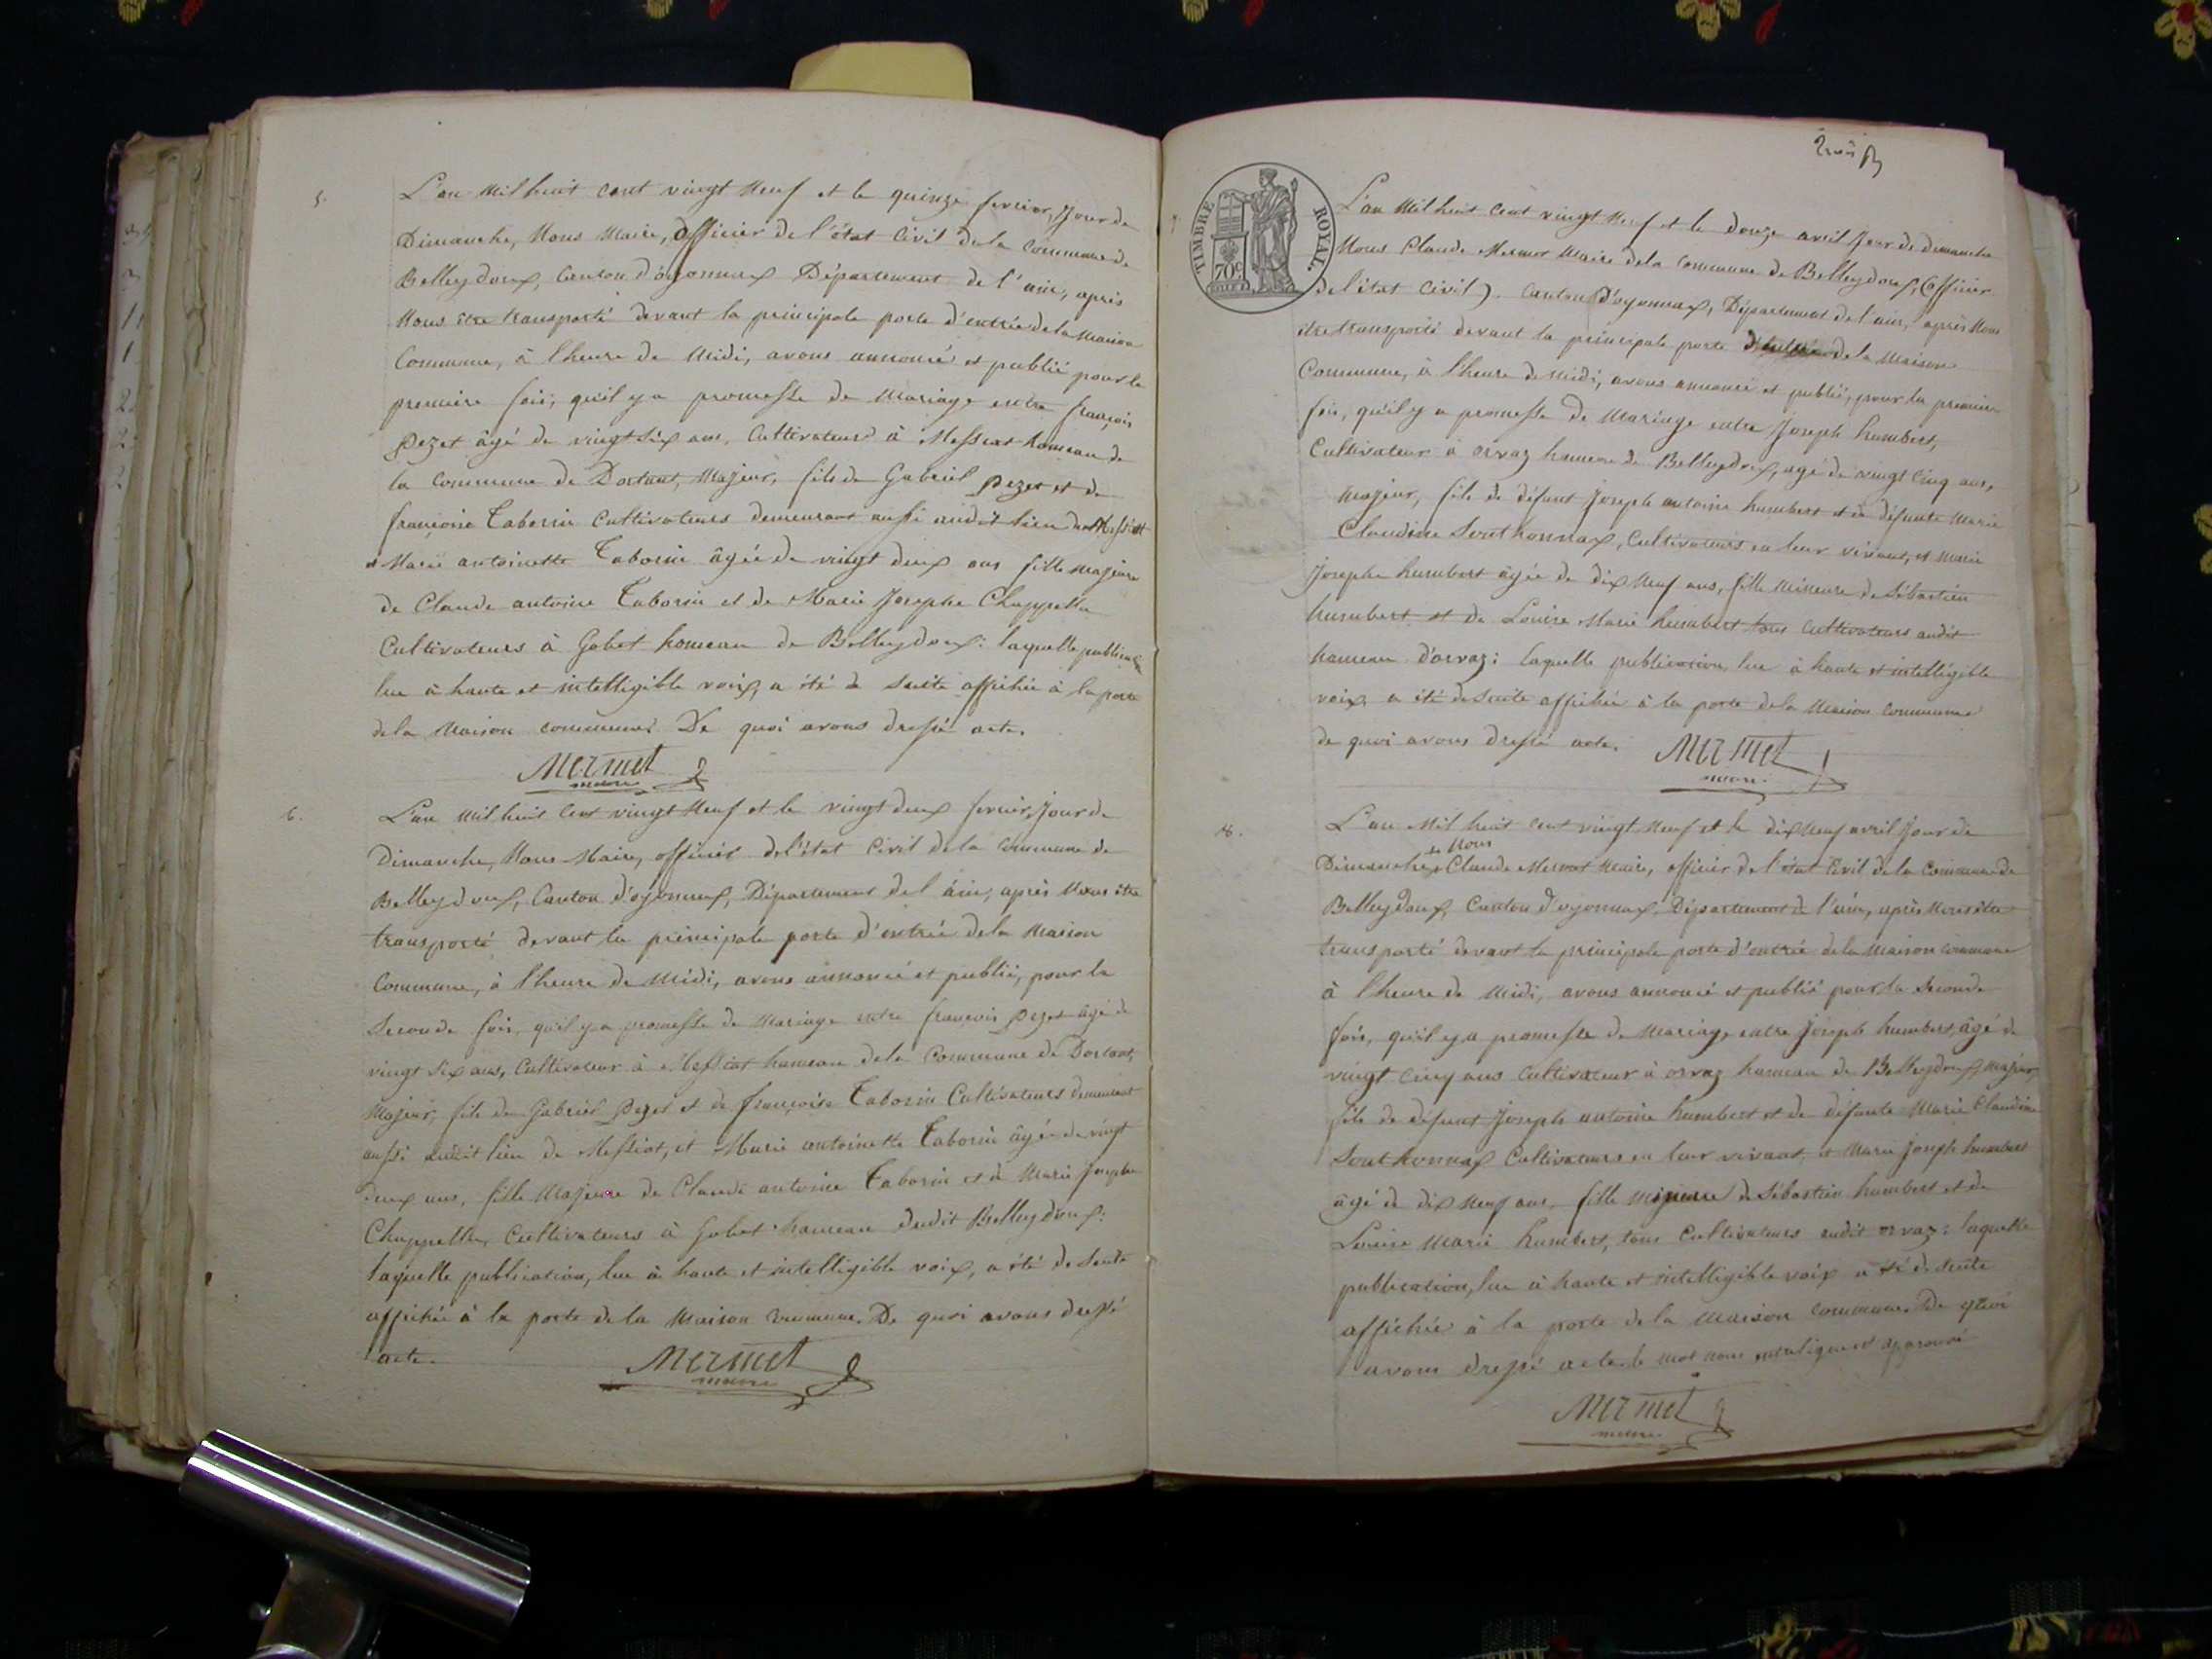 5.
L'an Mil huit cent vingt Neuf et le quinze fevrier, Jour de
Dimanche, Nous Maire, officier de l'état Civil de la Commune de
Belleydoux, Canton d'oyonnax Département de l'ain, après
Nous être transporté devant la principale porte d'entrée de la Maison
Commune, à l'heure de Midi, avons annoncé et publié pour la
premiere fois, qu'il y a promesse de Mariage entre françois
Pezet âgé de vingt six ans, Cultivateur à Messiat hameau de
la Commune de Dortant, Majeur, fils de Gabriel Pezet et de
françoise Taborin Cultivateurs demeurant aussi audit lieu de Messiat
et Marie antoinette Taborin âgée de vingt deux ans fille majeure
de Claude antoine Taborin et de Marie Josephe Chappellu
Cultivateurs à Gobet hameau de Belleydoux: laquelle publication
lue à haute et intelligible voix, a été de suite affichée à la porte
de la Maison commune. De quoi avons dressé acte.
Mermet
maire
6.
L'an Mil huit Cent vingt Neuf et le vingt deux fevrier, Jour de
Dimanche, Nous Maire, officier de l'état Civil de la Commune de
Belleydoux, Canton d'oyonnax, Département de l'ain, après Nous être
transporté devant la principale porte d'entrée de la Maison
Commune, à l'heure de Midi, avons annoncé et publié, pour la
Seconde fois, qu'il y a promesse de Mariage entre françois Pezet âgé de
vingt six ans, Cultivateur à Messiat hameau de la Commune de Dortant,
Majeur, fils de Gabriel Pezet et de françoise Taborin Cultivateurs demeurant
aussi audit lieu de Messiat, et Marie antoinette Taborin âgée de vingt
deux ans, fille Majeure de Claude antoine Taborin et de Marie Josephe
Chappellu, Cultivateurs à Gobet hameau dudit Belleydoux:
laquelle publication, lue à haute et intelligible voix, a été de suite
affichée à la porte de la Maison commune. De quoi avons dressé
acte.
Mermet
maire
TIMBRE ROYAL.
70c
L'an Mil huit Cent vingt Neuf et le douze avril Jour de Dimanche
Nous Claude Mermet Maire de la Commune de Belleydoux, (officier
de l'état Civil). Canton d'oyonnax, Département de l'ain, après Nous
être transporté devant la principale porte d'entrée de la Maison
Commune, à l'heure de Midi, avons annoncé et publié, pour la premiere
fois, qu'il y a promesse de Mariage entre Joseph humbert,
Cultivateur à orvaz hameau de Belleydoux, agé de vingt Cinq ans,
Majeur, fils de défunt Joseph antoine humbert et de défunte Marie
Claudine Sonthonnax, Cultivateurs en leur vivant, et Marie
Josephe humbert âgée de dix Neuf ans, fille Mineure de Sébastien
humbert et de Louise Marie humbert tous Cultivateurs audit
hameau d'orvaz: laquelle publication lue à haute et intelligible
voix, a été de suite affichée à la porte de la Maison commune
de quoi avons dressé acte.
Mermet
maire
8.
L'an Mil huit Cent vingt Neuf et le dix Neuf avril Jour de
Dimanche, Nous Claude Mermet Maire, officier de l'état Civil de la Commune de
Belleydoux, Canton d'oyonnax, Département de l'ain, après Nous être
transporté devant la principale porte d'entrée de la Maison commune
à l'heure de Midi, avons annoncé et publié pour la Seconde
fois, qu'il y a promesse de Mariage entre Joseph humbert, âgé de
vingt Cinq ans Cultivateur à orvaz hameau de Belleydoux, Majeur,
fils de défunt Joseph antoine humbert et de défunte Marie Claudine
Sonthonnax Cultivateurs en leur vivant, et Marie Joseph humbert
âgé de dix Neuf ans, fille Mineure de Sébastien humbert et de
Louise Marie humbert, tous Cultivateurs audit orvaz: laquelle
publication, lue à haute et intelligible voix a été de suite
affichée à la porte de la Maison commune. De quoi
avons dressé acte. le mot nous interligne est approuvé
Mermet
maire